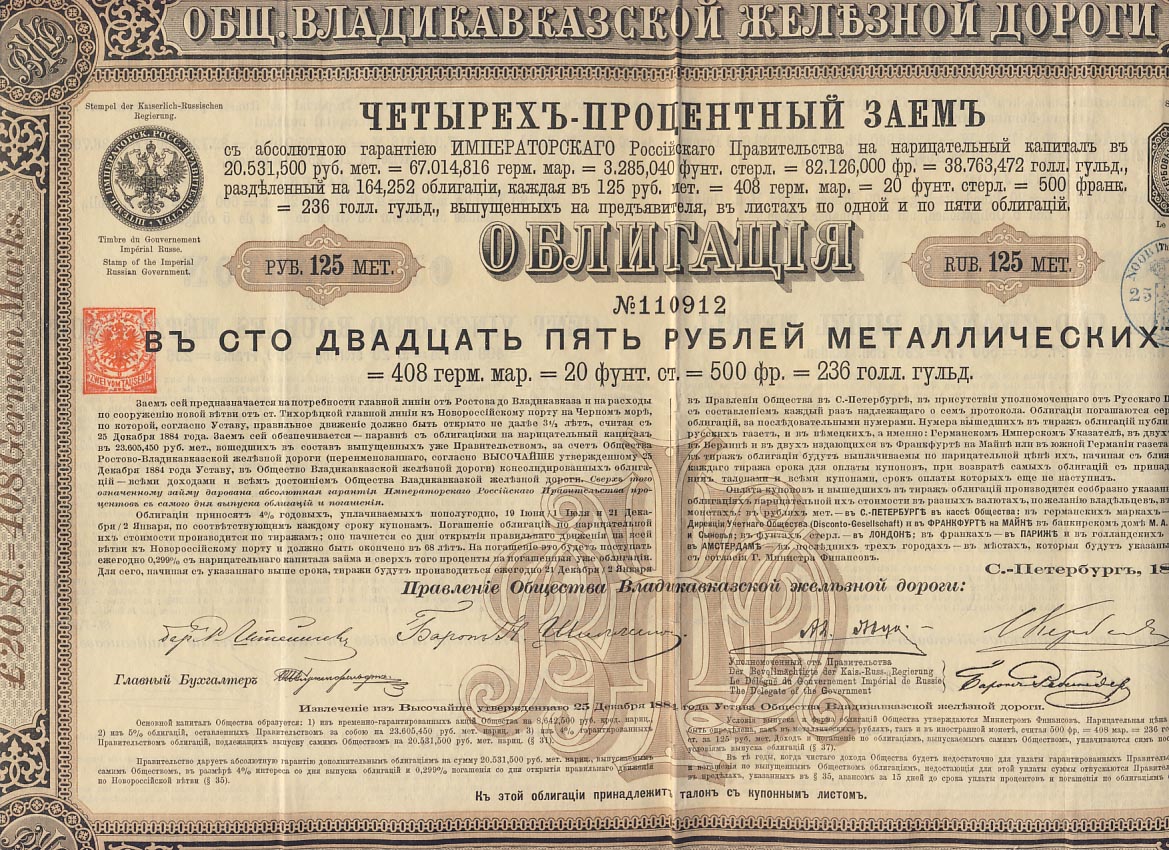 ОБЩ. ВЛАДИКАВКАЗСКОЙ ЖЕЛѢЗНОЙ ДОРОГИ
Stempel der Kaiserlich-Russischen
Regierung.
Timbre du Gouvernement
Impérial Russe.
Stamp of the Imperial
Russian Government.
£20 St.=408 German Marks.
ЧЕТЫРЕХЪ-ПРОЦЕНТНЫЙ ЗАЕМЪ
съ абсолютною гарантіею ИМПЕРАТОРСКАГО Россійскаго Правительства на нарицательный капиталъ въ
20.531,500 руб. мет. = 67.014,816 герм. мар. = 3.285,040 фунт. стерл. = 82.126,000 фр. = 38.763,472 голл. гульд.,
раздѣленный на 164,252 облигаціи, каждая въ 125 руб. мет. = 408 герм. мар. = 20 фунт. стерл. = 500 франк.
= 236 голл. гульд., выпущенныхъ на предъявителя, въ листахъ по одной и по пяти облигацій.
ОБЛИГАЦІЯ
РУБ. 125 МЕТ.
RUB. 125 MET.
№110912
ВЪ СТО ДВАДЦАТЬ ПЯТЬ РУБЛЕЙ МЕТАЛЛИЧЕСКИХЪ
= 408 герм. мар. = 20 фунт. ст. = 500 фр. = 236 голл. гульд.
Заемъ сей предназначается на потребности главной линіи отъ Ростова до Владикавказа и на расходы
по сооруженію новой вѣтви отъ ст. Тихорѣцкой главной линіи къ Новороссійскому порту на Черномъ морѣ,
по которой, согласно Уставу, правильное движеніе должно быть открыто не далѣе 3½ лѣтъ, считая съ
25 Декабря 1884 года. Заемъ сей обезпечивается — наравнѣ съ облигаціями на нарицательный капиталъ
въ 23.605,450 руб. мет., вошедшихъ въ составъ выпущенныхъ уже Правительствомъ, за счетъ Общества
Ростово-Владикавказской желѣзной дороги (переименованнаго, согласно ВЫСОЧАЙШЕ утвержденному 25
Декабря 1884 года Уставу, въ Общество Владикавказской желѣзной дороги) консолидированныхъ облига-
цій — всѣми доходами и всѣмъ достояніемъ Общества Владикавказской желѣзной дороги. Сверхъ того
означенному займу дарована абсолютная гарантія Императорскаго Россійскаго Правительства про-
центовъ съ самаго дня выпуска облигацій и погашенія.
Облигаціи приносятъ 4% годовыхъ, уплачиваемыхъ полугодно, 19 Іюня/1 Іюля и 21 Дека-
бря/2 Января, по соотвѣтствующимъ каждому сроку купонамъ. Погашеніе облигацій по нарицательной
ихъ стоимости производится по тиражамъ; оно начнется со дня открытія правильнаго движенія по всей
вѣтви къ Новороссійскому порту и должно быть окончено въ 68 лѣтъ. На погашеніе это будетъ поступать
ежегодно 0,299% съ нарицательнаго капитала займа и сверхъ того проценты на погашенныя уже облигаціи.
Для сего, начиная съ указаннаго выше срока, тиражи будутъ производиться ежегодно 21 Декабря / 2 Января
въ Правленіи Общества въ С.-Петербургѣ, въ присутствіи уполномоченнаго отъ Русскаго
съ составленіемъ каждый разъ надлежащаго о семъ протокола. Облигаціи погашаются
облигацій, за послѣдовательными нумерами. Нумера вышедшихъ въ тиражъ облигацій
русскихъ газетъ, и въ нѣмецкихъ, а именно: Германскомъ Имперскомъ Указателѣ, въ
въ Берлинѣ и въ двухъ издающихся въ Франкфуртѣ на Майнѣ или въ южной Германіи
въ тиражъ облигаціи будутъ выплачиваемы по нарицательной цѣнѣ ихъ, начиная съ
каждаго тиража срока для уплаты купоновъ, при возвратѣ самыхъ облигацій съ
нимъ талонами и всѣми купонами, срокъ оплаты которыхъ еще не наступилъ.
Оплата купоновъ и вышедшихъ въ тиражъ облигацій производится сообразно
облигаціяхъ нарицательной ихъ стоимости въ разныхъ валютахъ, по желанію владѣльцевъ,
монетахъ: въ рубляхъ мет. — въ С.-ПЕТЕРБУРГѢ въ кассѣ Общества; въ германскихъ маркахъ —
Дирекціи Учетнаго Общества (Disconto-Gesellschaft) и въ ФРАНКФУРТѢ на МАЙНѢ въ банкирскомъ домѣ М. А.
и Сыновья; въ фунтахъ стерл. — въ ЛОНДОНѢ; въ франкахъ — въ ПАРИЖѢ и въ голландскихъ
въ АМСТЕРДАМѢ — въ послѣднихъ трехъ городахъ — въ мѣстахъ, которыя будутъ
съ согласія Г. Министра Финансовъ.
С.-Петербургъ,
Правленіе Общества Владикавказской желѣзной дороги:
Главный Бухгалтеръ
Уполномоченный отъ Правительства
Der Bevollmächtigte der Kais.-Russ. Regierung
Le Délégué du Gouvernement Impérial de Russie
The Delegate of the Government
Извлеченіе изъ Высочайше утвержденнаго 25 Декабря 1884 года Устава Общества Владикавказской желѣзной дороги.
Основной капиталъ Общества образуется: 1) изъ временно-гарантированныхъ акцій Общества на 8,642,500 руб. кред. нариц.,
2) изъ 5% облигацій, оставленныхъ Правительствомъ за собою на 23.605,450 руб. мет. нариц. и 3) изъ 4% гарантированныхъ
Правительствомъ облигацій, подлежащихъ выпуску самимъ Обществомъ на 20.531,500 руб. мет. нариц. (§ 31).
Правительство даруетъ абсолютную гарантію дополнительнымъ облигаціямъ на сумму 20.531,500 руб. мет. нариц., выпускаемымъ
самимъ Обществомъ, въ размѣрѣ 4% интереса со дня выпуска облигацій и 0,299% погашенія со дня открытія правильнаго движенія
по Новороссійской вѣтви (§ 35).
Условія выпуска и форма облигацій Общества утверждаются Министромъ Финансовъ. Нарицательная
быть опредѣлена, какъ въ металлическихъ рубляхъ, такъ и въ иностранной монетѣ, считая 500 фр. = 408 мар. = 236
ст. за 125 руб. мет. Доходъ и погашеніе по облигаціямъ, выпускаемымъ самимъ Обществомъ, уплачиваются
условіямъ выпуска облигацій (§ 37).
Въ тѣ годы, когда чистаго дохода Общества будетъ недостаточно для уплаты гарантированныхъ
и погашенія по выпущеннымъ Обществомъ облигаціямъ, недостающія для этой уплаты суммы отпускаются
въ предѣлахъ, указанныхъ въ § 35, авансомъ за 15 дней до срока уплаты процентовъ и погашенія по облигаціямъ
Къ этой облигаціи принадлежитъ талонъ съ купоннымъ листомъ.